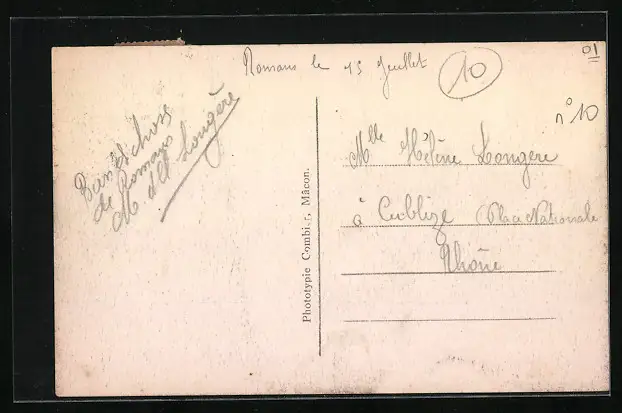 Romans le 15 Juillet
10
01
n° 10
Bonnes choses
de Romans
M et Longère
Mlle Hélène Longère
à Cublize (Place Nationale
Rhône
Phototypie Combier, Mâcon.